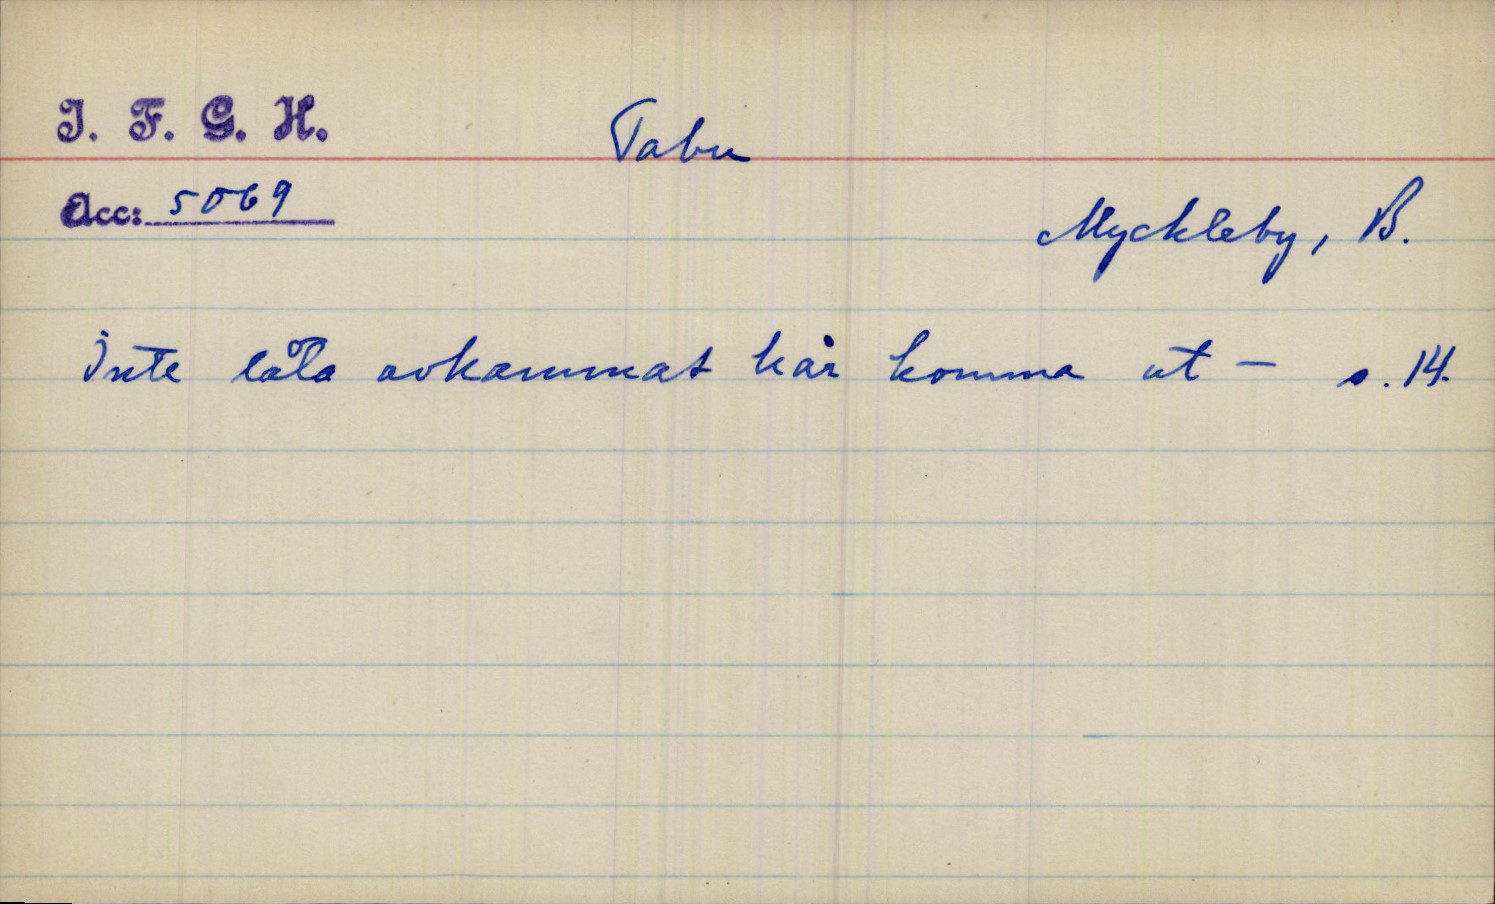 I. F. G. H.
Tabu
Acc: 5069
Myckleby, B.
Inte låta avkammat hår komma ut – s. 14.